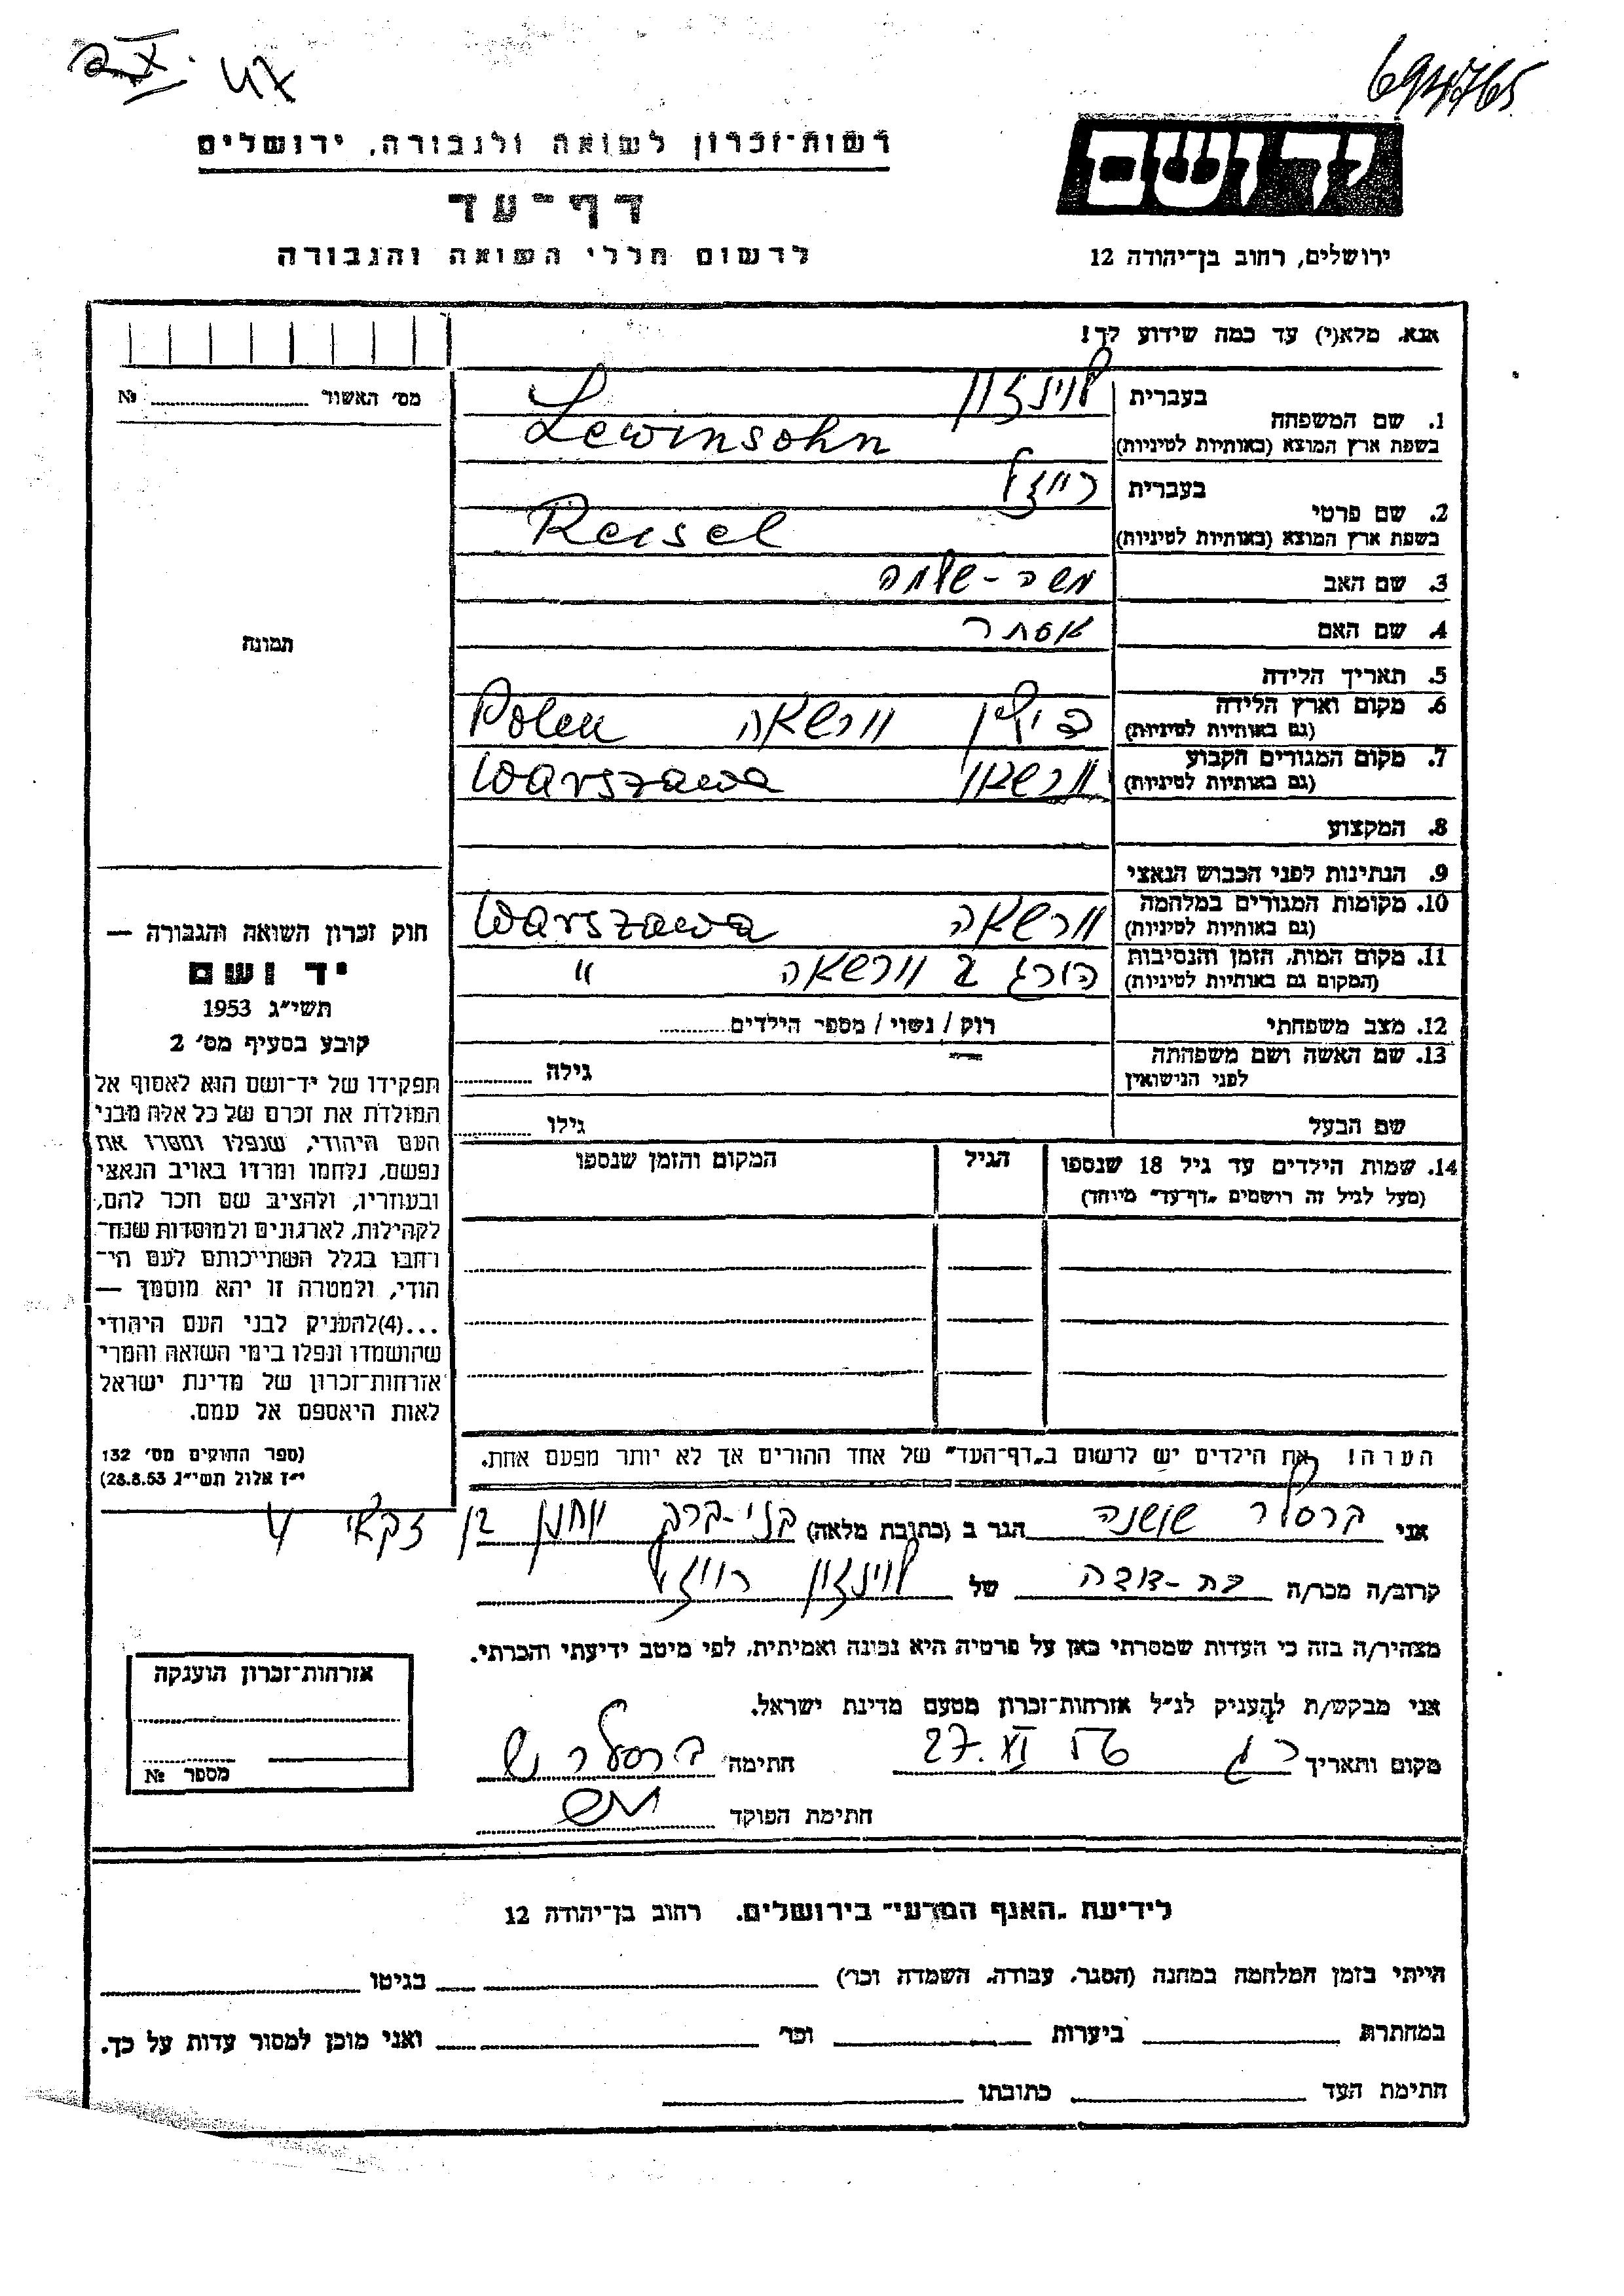 47
יד ושם
רשות־זכרון לשואה ולגבורה, ירושלים
דף־עד
לרשום חללי השואה והגבורה
ירושלים, רחוב בן־יהודה 12
אנא, מלא(י) עד כמה שידוע לך!
מס' האשור № 
1. שם המשפחה
בעברית לוינזון
בשפת ארץ המוצא (באותיות לטיניות) Lewinsohn
2. שם פרטי
בעברית רייזל
בשפת ארץ המוצא (באותיות לטיניות) Reisel
3. שם האב משה-שלמה
4. שם האם אסתר
תמונה
5. תאריך הלידה
6. מקום וארץ הלידה (גם באותיות לטיניות) פולין וורשאה Polen
7. מקום המגורים הקבוע (גם באותיות לטיניות) Warszawa
8. המקצוע
9. הנתינות לפני הכבוש הנאצי
10. מקומות המגורים במלחמה (גם באותיות לטיניות) וורשאה Warszawa
11. מקום המות, הזמן והנסיבות (המקום גם באותיות לטיניות) הורג ב וורשאה "
12. מצב משפחתי רוק / נשוי / מספר הילדים
13. שם האשה ושם משפחתה לפני הנישואין גילה
שם הבעל גילו
14. שמות הילדים עד גיל 18 שנספו הגיל המקום והזמן שנספו
(מעל לגיל זה רושמים "דף־עד" מיוחד)
חוק זכרון השואה והגבורה —
יד ושם
תשי"ג 1953
קובע בסעיף מס' 2
תפקידו של יד־ושם הוא לאסוף אל
המולדת את זכרם של כל אלה מבני
העם היהודי, שנפלו ומסרו את
נפשם, נלחמו ומרדו באויב הנאצי
ובעוזריו, ולהציב שם וזכר להם,
לקהילות, לארגונים ולמוסדות שנח־
רבו בגלל השתייכותם לעם הי־
הודי, ולמטרה זו יהא מוסמך —
...(4)להעניק לבני העם היהודי
שהושמדו ונפלו בימי השואה והמרי
אזרחות־זכרון של מדינת ישראל
לאות היאספם אל עמם.
(ספר החוקים מס' 132
י"ז אלול תשי"ג 28.8.53)
הערה! את הילדים יש לרשום ב"דף־העד" של אחד ההורים אך לא יותר מפעם אחת.
אני קרסלר שושנה הגר ב (כתובת מלאה) בני-ברק יוחנן בן זכאי 4
קרוב/ה מכר/ה בת-דודה של לוינזון רייזל
מצהיר/ה בזה כי העדות שמסרתי כאן על פרטיה היא נכונה ואמיתית, לפי מיטב ידיעתי והכרתי.
אני מבקש/ת להעניק לנ"ל אזרחות־זכרון מטעם מדינת ישראל.
מקום ותאריך ר ג 27.XI 56 חתימה קרסלר ש
חתימת הפוקד
אזרחות־זכרון הוענקה
מספר №
לידיעת "האגף המדעי" בירושלים. רחוב בן־יהודה 12
הייתי בזמן המלחמה במחנה (הסגר, עבודה, השמדה וכו') בגיטו
במחתרת ביערות וכו' ואני מוכן למסור עדות על כך.
חתימת העד כתובתו